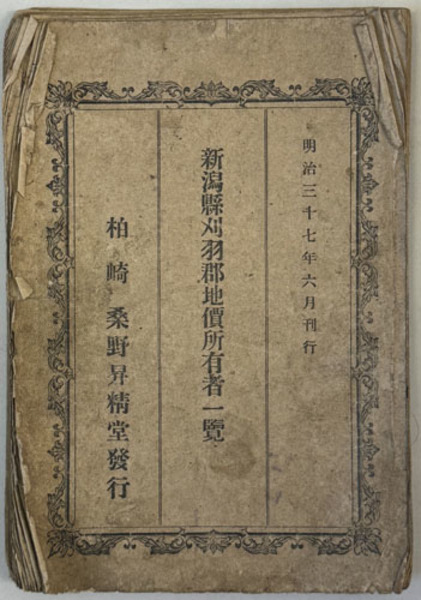 明治三十七年六月刊行
新潟縣刈羽郡地價所有者一覽
柏崎 桑野昇精堂發行